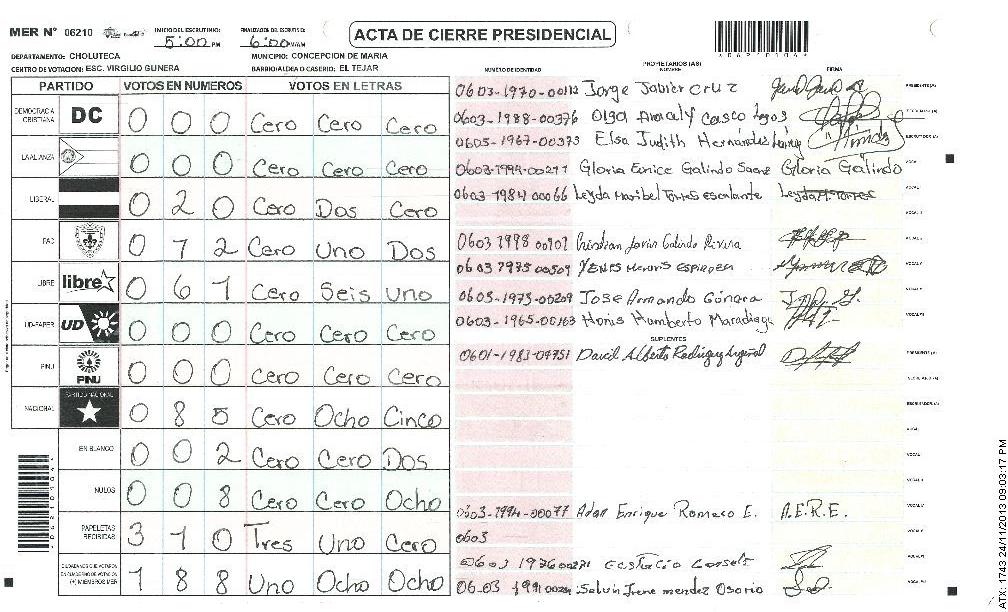 MER N° 06210 INICIO DEL ESCRUTINIO: 5:00 PM FINALIZACION DEL ESCRUTINIO: 6:00 PM/AM
ACTA DE CIERRE PRESIDENCIAL
DEPARTAMENTO: CHOLUTECA MUNICIPIO: CONCEPCION DE MARIA
CENTRO DE VOTACION: ESC. VIRGILIO GUNERA BARRIO/ALDEA O CASERIO: EL TEJAR
PARTIDO VOTOS EN NUMEROS VOTOS EN LETRAS
DEMOCRACIA CRISTIANA DC 0 0 0 Cero Cero Cero
LA ALIANZA 0 0 0 Cero Cero Cero
LIBERAL 0 2 0 Cero Dos Cero
PAC 0 1 2 Cero Uno Dos
LIBRE libre 0 6 1 Cero Seis Uno
UD-FAPER UD 0 0 0 Cero Cero Cero
PINU PINU 0 0 0 Cero Cero Cero
NACIONAL PARTIDO NACIONAL 0 8 5 Cero Ocho Cinco
EN BLANCO 0 0 2 Cero Cero Dos
NULOS 0 0 8 Cero Cero Ocho
PAPELETAS RECIBIDAS 3 1 0 Tres Uno Cero
CIUDADANOS QUE VOTARON EN CUADERNO DE VOTACION (+) MIEMBROS MER 1 8 8 Uno Ocho Ocho
NUMERO DE IDENTIDAD PROPIETARIOS (AS) NOMBRE FIRMA
Jorge Javier Cruz PRESIDENTE (A)
0603-1988-00376 Olga Aracaly Casco
0603-1967-00373 Elsa Judith Hernández
Gloria Eunice Galindo Gloria Galindo
0603 1984 00066 Leyda Maribel Torres escalante Leyda M. Torres
Cristian Javier Galindo Rivera
0603-1973-00209 Jose Armando Gúnara
0603-1965-00163 Honis Humberto Maradiaga
SUPLENTES
David Alberto PRESIDENTE (A)
SECRETARIO (A)
ESCRUTADOR (A)
0603-1994-00077 Adan Enrique Romero E. A.E.R.E.
0603
Eustacio
Selvin Irene mendez Osorio
ATX 1743 24/11/2013 09:03:17 PM